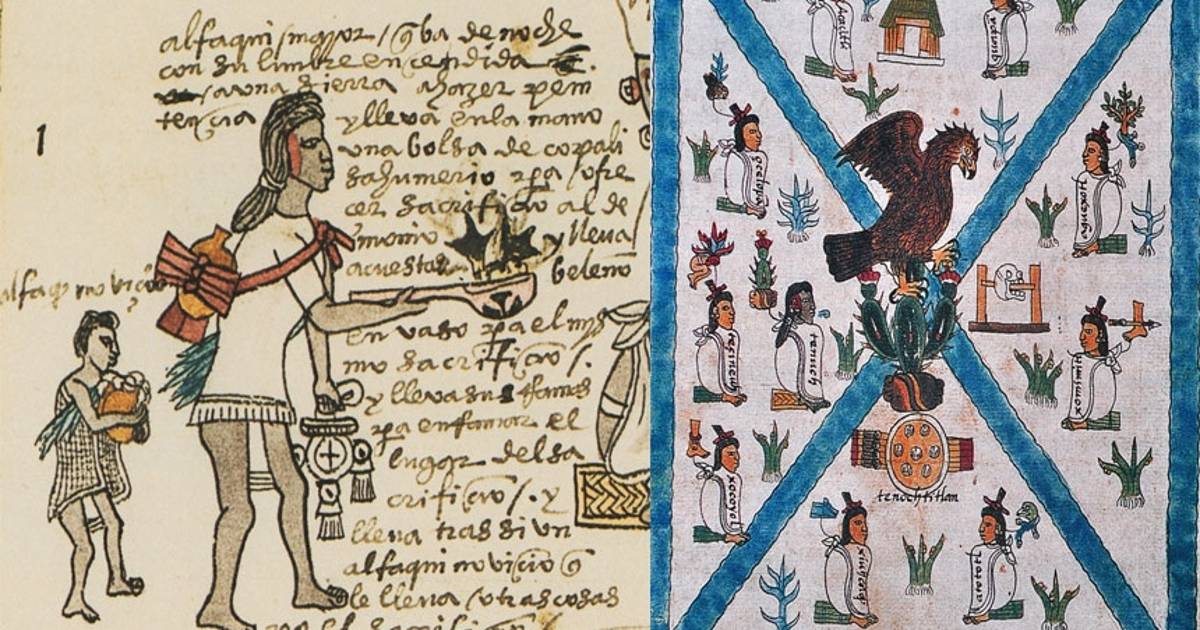 alfaqui mayor / q̄ ba de noche
con su lumbre encendida
a una sierra a hazer peni
tençia
y lleva en la mano
una bolsa de copali
sahumerio pa / ofre
cer sacrificio al de
monio y lleva
acuestas beleño
en vaso pa el mis
mo sacrificio /.
y lleva sus
pa enfamar el
lugar del sa
crificio /. y
lleva tras si un
alfaqui noviçio q̄
le lleva / otras cosas
1
alfaqui noviçio
ocelopa
aguexotl
tecineuh
tenuch
xomimitl
xocoyol
tenochtitlan
xiuhcaq
atototl